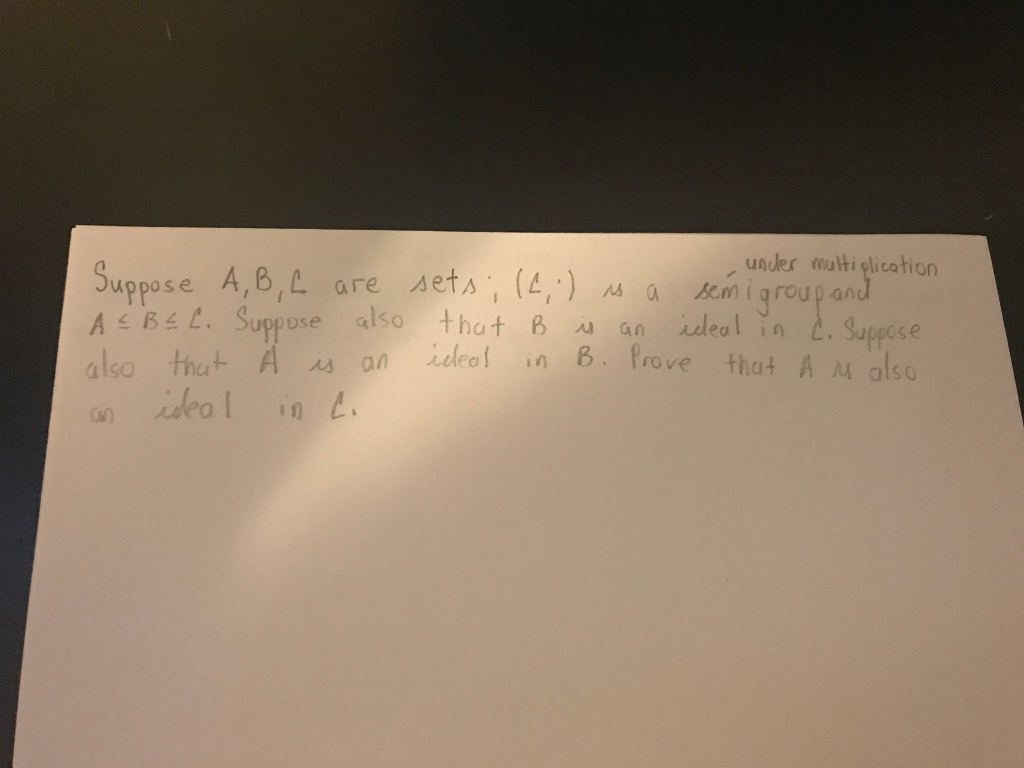 under multiplication
Suppose A, B, C are sets; (C, ·) is a semigroup and
A ≤ B ≤ C. Suppose also that B is an ideal in C. Suppose
also that A is an ideal in B. Prove that A is also
an ideal in C.